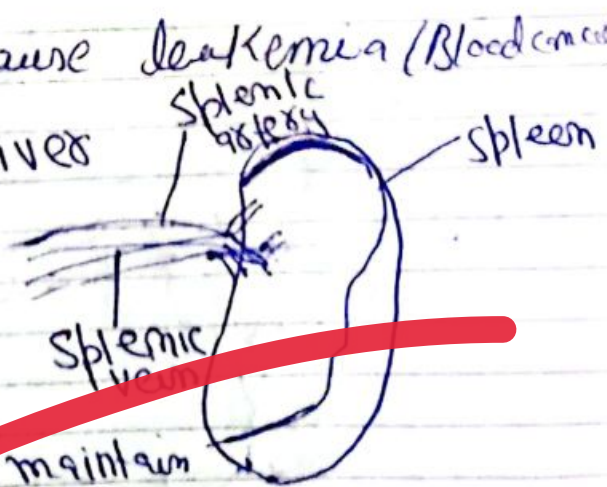 ause leukemia (Blood cance
splenic
artery
iver
spleen
splenic
vein
maintain